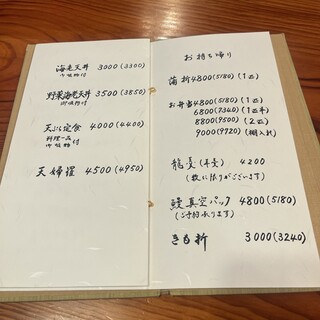 海老天丼 3000 (3300)
御吸物付
野菜海老天丼 3500 (3850)
御吸物付
天ぷら定食 4000 (4400)
料理一品
御吸物付
天婦羅 4500 (4950)
お持ち帰り
蒲折 4800 (5180) (1匹)
お弁当 4800 (5180) (1匹)
6800 (7340) (1匹半)
8800 (9500) (2匹)
9000 (9720) (棚入れ)
(数に限りがございます)
4200
鰻真空パック 4800 (5180)
(ご予約承ります)
きも折 3000 (3240)